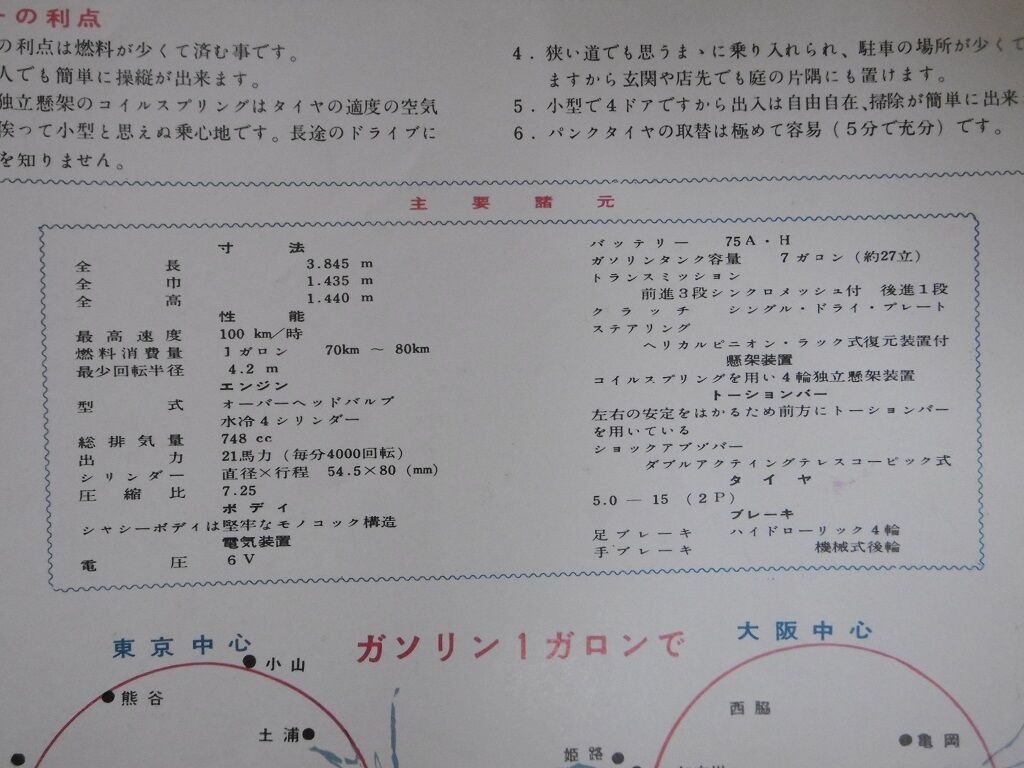 の利点
の利点は燃料が少くて済む事です。
人でも簡単に操縦が出来ます。
独立懸架のコイルスプリングはタイヤの適度の空気
俟って小型と思えぬ乗心地です。長途のドライブに
を知りません。
4．狭い道でも思うまゝに乗り入れられ、駐車の場所が少くて
ますから玄関や店先でも庭の片隅にも置けます。
5．小型で4ドアですから出入は自由自在、掃除が簡単に出来
6．パンクタイヤの取替は極めて容易（5分で充分）です。
主要諸元
寸法
全長 3.845 m
全巾 1.435 m
全高 1.440 m
性能
最高速度 100 km／時
燃料消費量 1ガロン 70km ～ 80km
最少回転半径 4.2 m
エンジン
型式 オーバーヘッドバルブ
水冷4シリンダー
総排気量 748 cc
出力 21馬力（毎分4000回転）
シリンダー 直径×行程 54.5×80 (mm)
圧縮比 7.25
ボディ
シャシーボディは堅牢なモノコック構造
電気装置
電圧 6 V
バッテリー 75A・H
ガソリンタンク容量 7ガロン（約27立）
トランスミッション
前進3段シンクロメッシュ付 後進1段
クラッチ シングル・ドライ・プレート
ステアリング
ヘリカルピニオン・ラック式復元装置付
懸架装置
コイルスプリングを用い4輪独立懸架装置
トーションバー
左右の安定をはかるため前方にトーションバー
を用いている
ショックアブゾバー
ダブルアクティングテレスコーピック式
タイヤ
5.0 — 15 （2P）
ブレーキ
足ブレーキ ハイドローリック4輪
手ブレーキ 機械式後輪
東京中心
ガソリン1ガロンで
大阪中心
小山
熊谷
土浦
西脇
亀岡
姫路